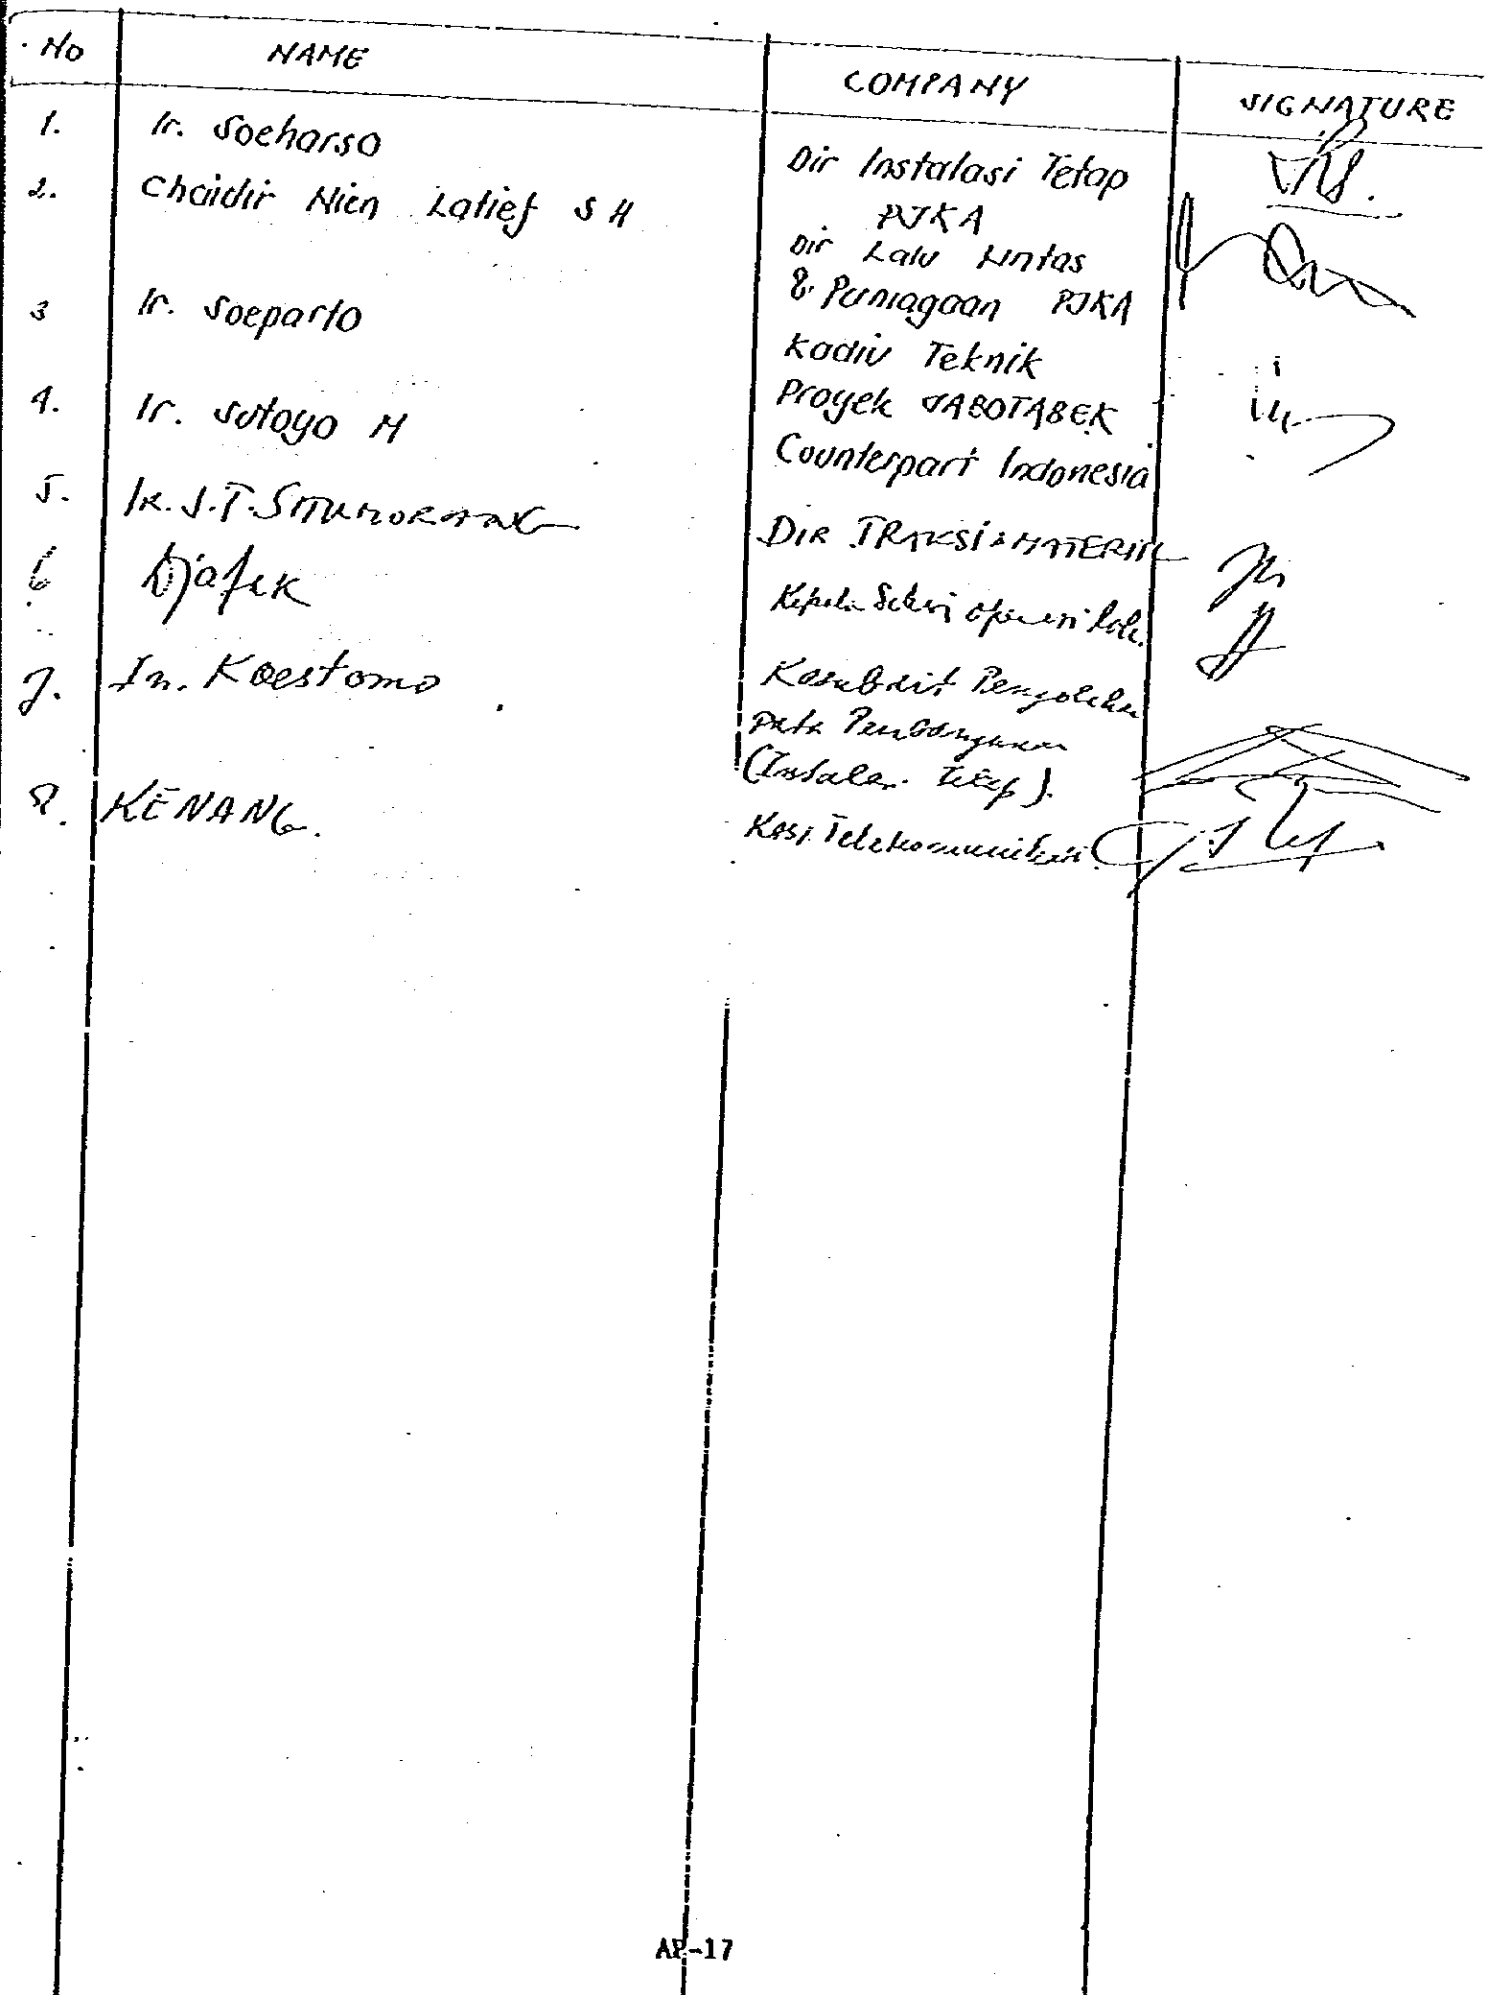 No NAME COMPANY SIGNATURE
1. Ir. Soeharso Dir Instalasi Tetap
PJKA
2. Chaidir Nien Latief SH Dir Lalu Lintas
& Perniagaan PJKA
3 Ir. Soeparto Kadiv Teknik
Proyek JABOTABEK
4. Ir. Sutoyo M Counterpart Indonesia
5. IR. S.T. SITUMORANG DIR TRAKSI & MATERIIL
6 Djafek Kepala Seksi Operasi
7. Ir. Koestomo Kasubdit Pengolahan
Data Pembangunan
(Instalasi Tetap).
8. KENANG. Kasi Telekomunikasi
AP-17